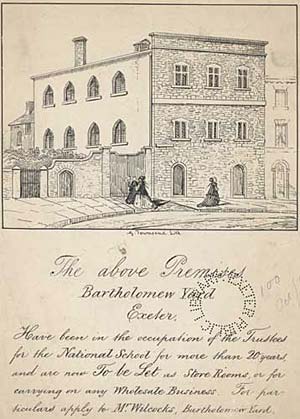 G. Townsend Lith
The above Premises,
Bartholomew Yard
Exeter,
Have been in the occupation of the Trustees
for the National School for more than 20 years,
and are now To be Let as Store Rooms, or for
carrying on any Wholesale Business. For par-
ticulars apply to Mr. Wilcocks, Bartholomew Yard.
100